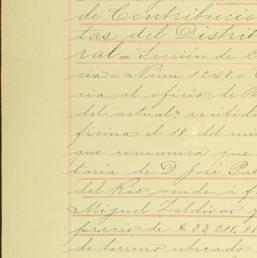 de Contribucio
tas del Distrit
ral = Sección de C
cia = Núm 1248. =
cia al oficio de
del actual, recibido
ficina el 18 del mis
que comunica que
taría de D. José
del Rio vende á f
Miguel Zaldivar y
precio de $ 33,211.88
de terreno ubicado